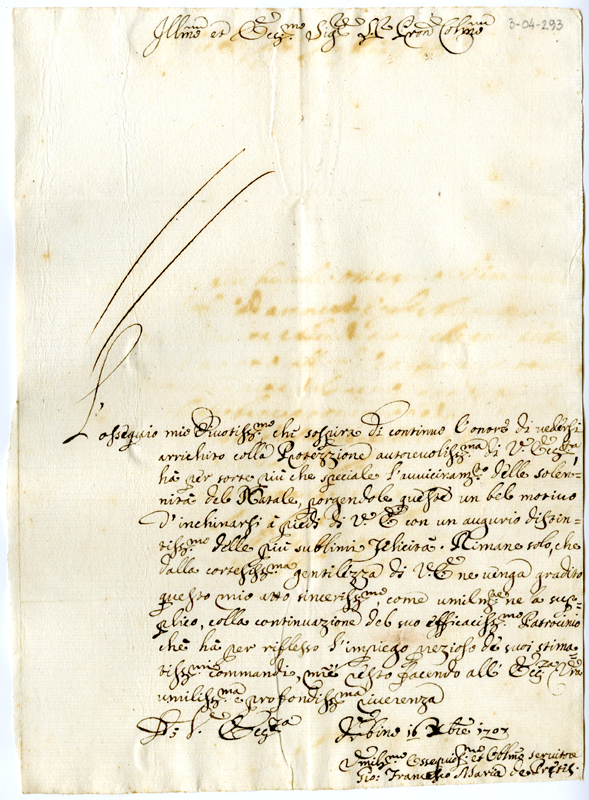 3-04-293
Illmo et Eccmo Sigre Sr Pron Colmo
L'ossequio mio divotissmo che sospira di continuo l'onore di vedersi
arrichito colla Protezzione autorevolissma di V. Eccza
hà per sorte più che speciale l'avvicinamto delle solen-
nità del Natale, porgendole queste un bel motivo
d'inchinarsi à piedi di V. E. con un augurio distin-
tissmo delle più sublimi felicità. Rimane solo, che
dalla cortesissma gentilezza di V. E. ne venga gradito
questo mio atto sincerissmo, come umilmte ne la sup-
plico, colla continuazione del suo efficacissmo Patrocinio
che hà per riflesso l'impiego prezioso de suoi stima-
tissmi commandi, mentre resto facendo all' Eccza Vra
umilissma e profondissma riverenza
Di V. Eccza Urbino 16 Xbre 1707
Umilmo Ossequismo et Obblmo servitore
Gio: Francesco Maria de